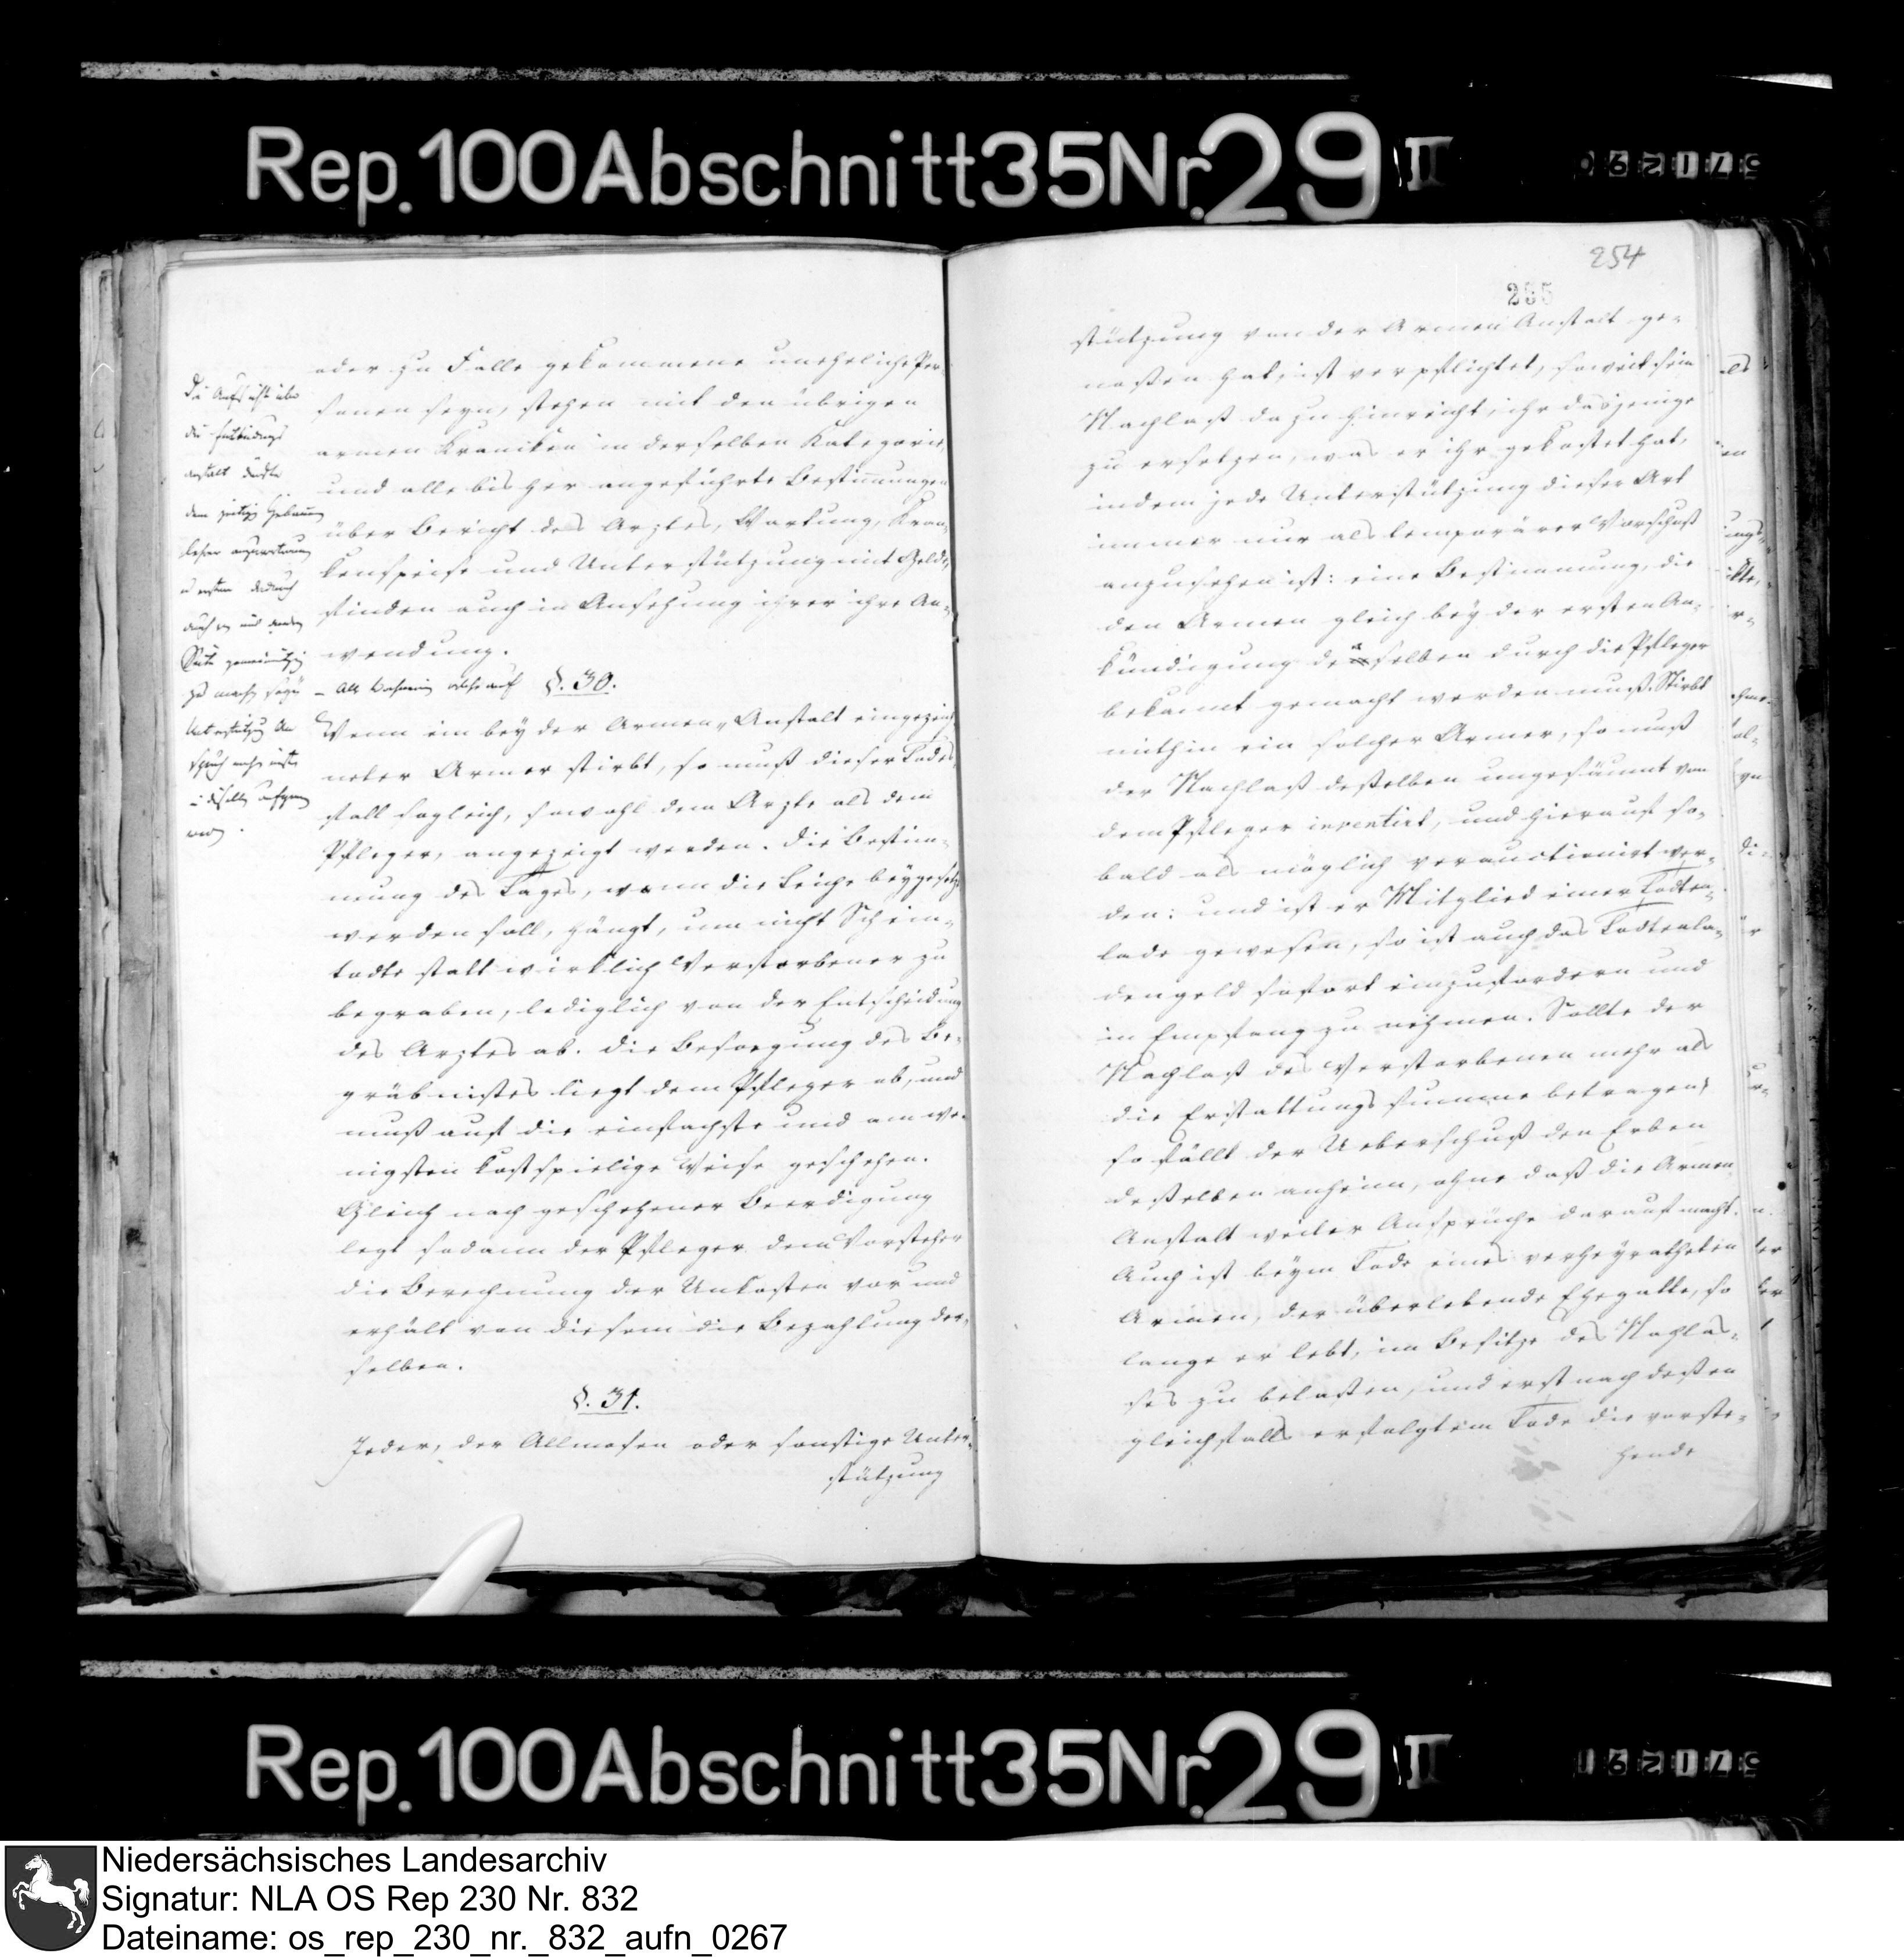 Rep. 100 Abschnitt 35 Nr. 29 II
254
255
oder zu Falle gekommene unehelichePer-
sonen seyn, stehen mit den übrigen
armen Kranken in derselben Kategorie,
und alle bisher angeführte Bestimmungen
über Bericht des Arztes, Wartung, Kran-
kenspeise und Unterstützung mit Gelde,
finden auch in Ansehung ihrer ihre An-
wendung.
Die Aufsicht über
die Entbindungs
anstalt
dem zeitigen Hebammen
lehrer
auch
Seite gemeinnützig
zu machen
§. 30.
Wenn ein bey der Armen-Anstalt eingezeich-
neter Armer stirbt, so muß dieser Todes-
fall sogleich, sowohl dem Arzte als dem
Pfleger, angezeigt werden. Die Bestim-
mung des Tages, wann die Leiche beygesetzt
werden soll, hängt, um nicht Schein-
todte statt wirklich Verstorbener zu
begraben, lediglich von der Entscheidung
des Arztes ab. Die Besorgung des Be-
gräbnißes liegt dem Pfleger ob, und
muß auf die einfachste und am we-
nigsten kostspielige Weise geschehen.
Gleich nach geschehener Beerdigung
legt sodann der Pfleger dem Vorsteher
die Berechnung der Unkosten vor und
erhält von diesem die Bezahlung der-
selben.
§. 31.
Jeder, der Allmosen oder sonstige Unter-
stützung
stützung von der Armen Anstalt ge-
noßen hat, ist verpflichtet, soweit sein
Nachlaß dazu hinreicht, ihr dasjenige
zu ersetzen, was er ihr gekostet hat,
indem jede Unterstützung dieser Art
immer nur als temporärer Vorschuß
anzusehen ist: eine Bestimmung, die
den Armen gleich bey der ersten An-
kündigung derselben durch die Pfleger
bekannt gemacht werden muß. Stirbt
mithin ein solcher Armer, so muß
der Nachlaß deßelben ungesäumt von
dem Pfleger inventirt, und hierauf so-
bald als möglich verauctionirt wer-
den: und ist er Mitglied einer Todten-
lade gewesen, so ist auch das Todtenla-
dengeld sofort einzufordern und
in Empfang zu nehmen. Sollte der
Nachlaß des Verstorbenen mehr als
die Erstattungssumme betragen,
so fällt der Ueberschuß den Erben
deßelben anheim, ohne daß die Armen
Anstalt weiter Ansprüche darauf macht.
Auch ist beym Tode eines verheyratheten
Armen, der überlebende Ehegatte, so
lange er lebt, im Besitze des Nachlas-
ses zu belaßen, und erst nach deßen
gleichfalls erfolgtem Tode die vorste-
hende
Rep. 100 Abschnitt 35 Nr. 29 II
Niedersächsisches Landesarchiv
Signatur: NLA OS Rep 230 Nr. 832
Dateiname: os_rep_230_nr._832_aufn_0267